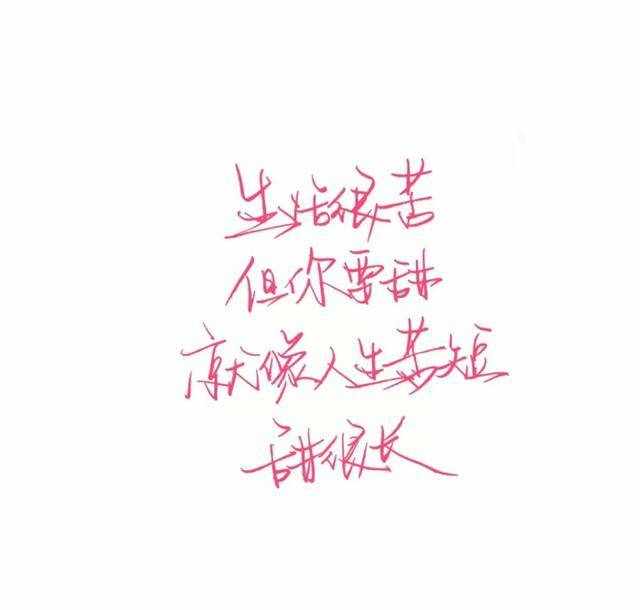 生活很苦
但你要甜
就像人生苦短
甜很长